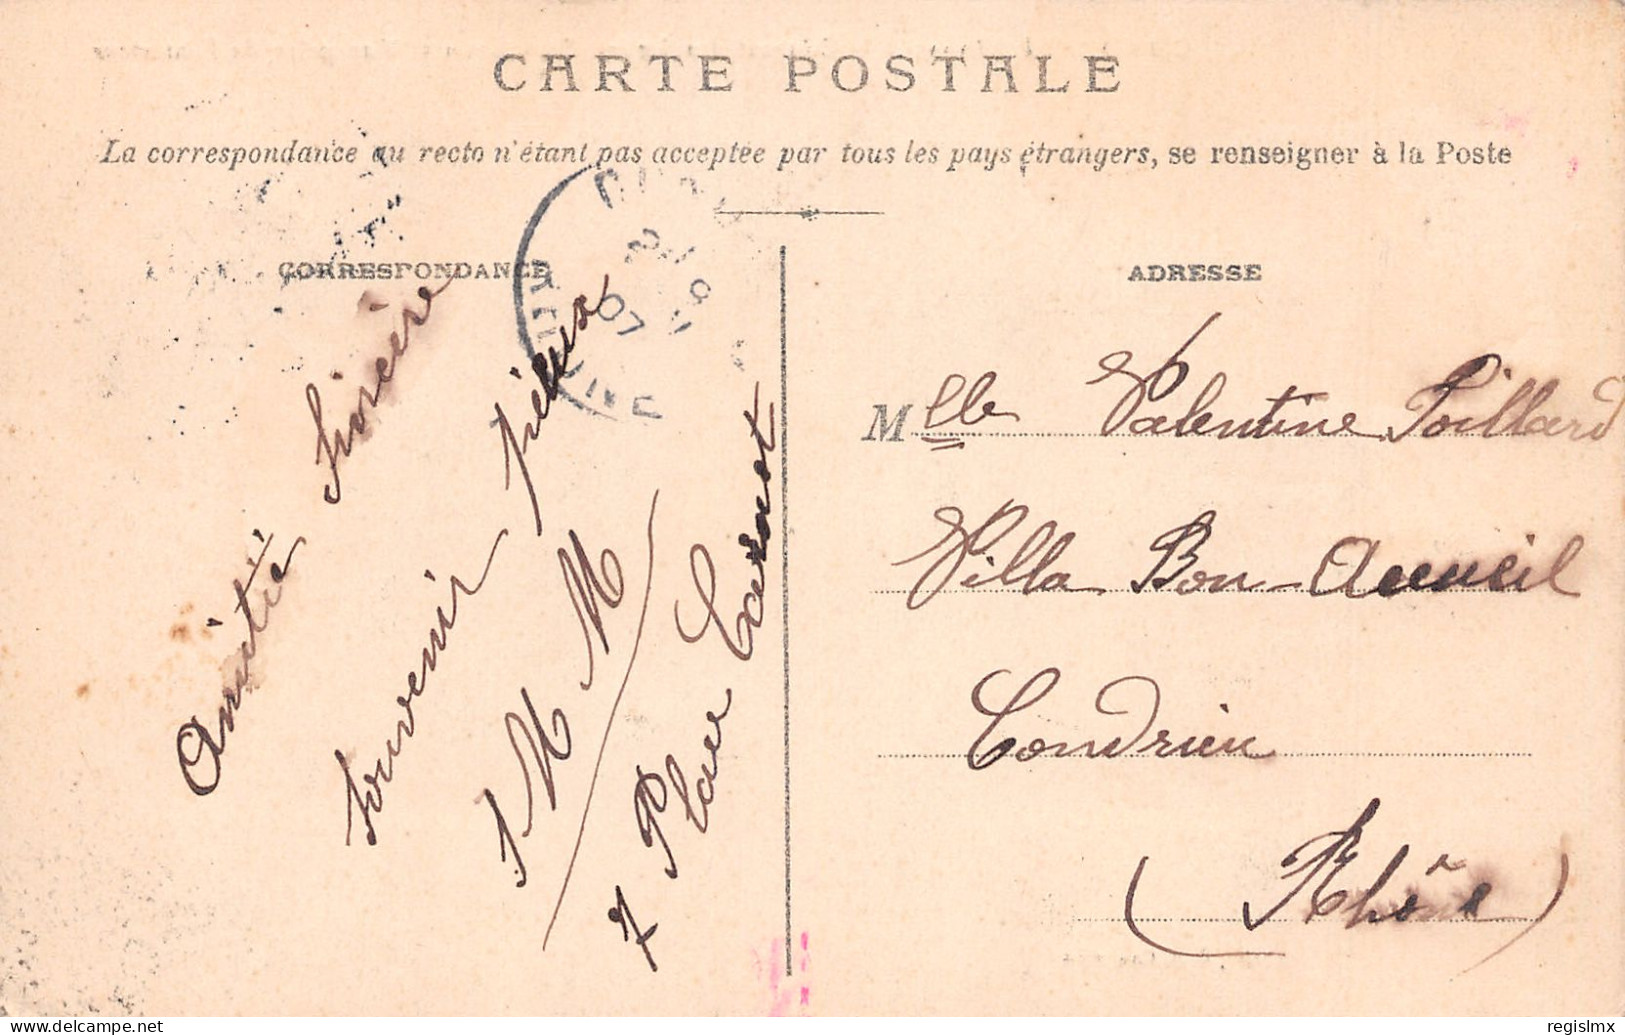 CARTE POSTALE
La correspondance au recto n'étant pas acceptée par tous les pays étrangers, se renseigner à la Poste
CORRESPONDANCE
Amitié Sincère
Souvenir pieux
M M
7 Place Carnot
ADRESSE
Mlle Valentine Poillard
Villa Bon-Accueil
Condrieu
(Rhône)
www.delcampe.net
regislmx